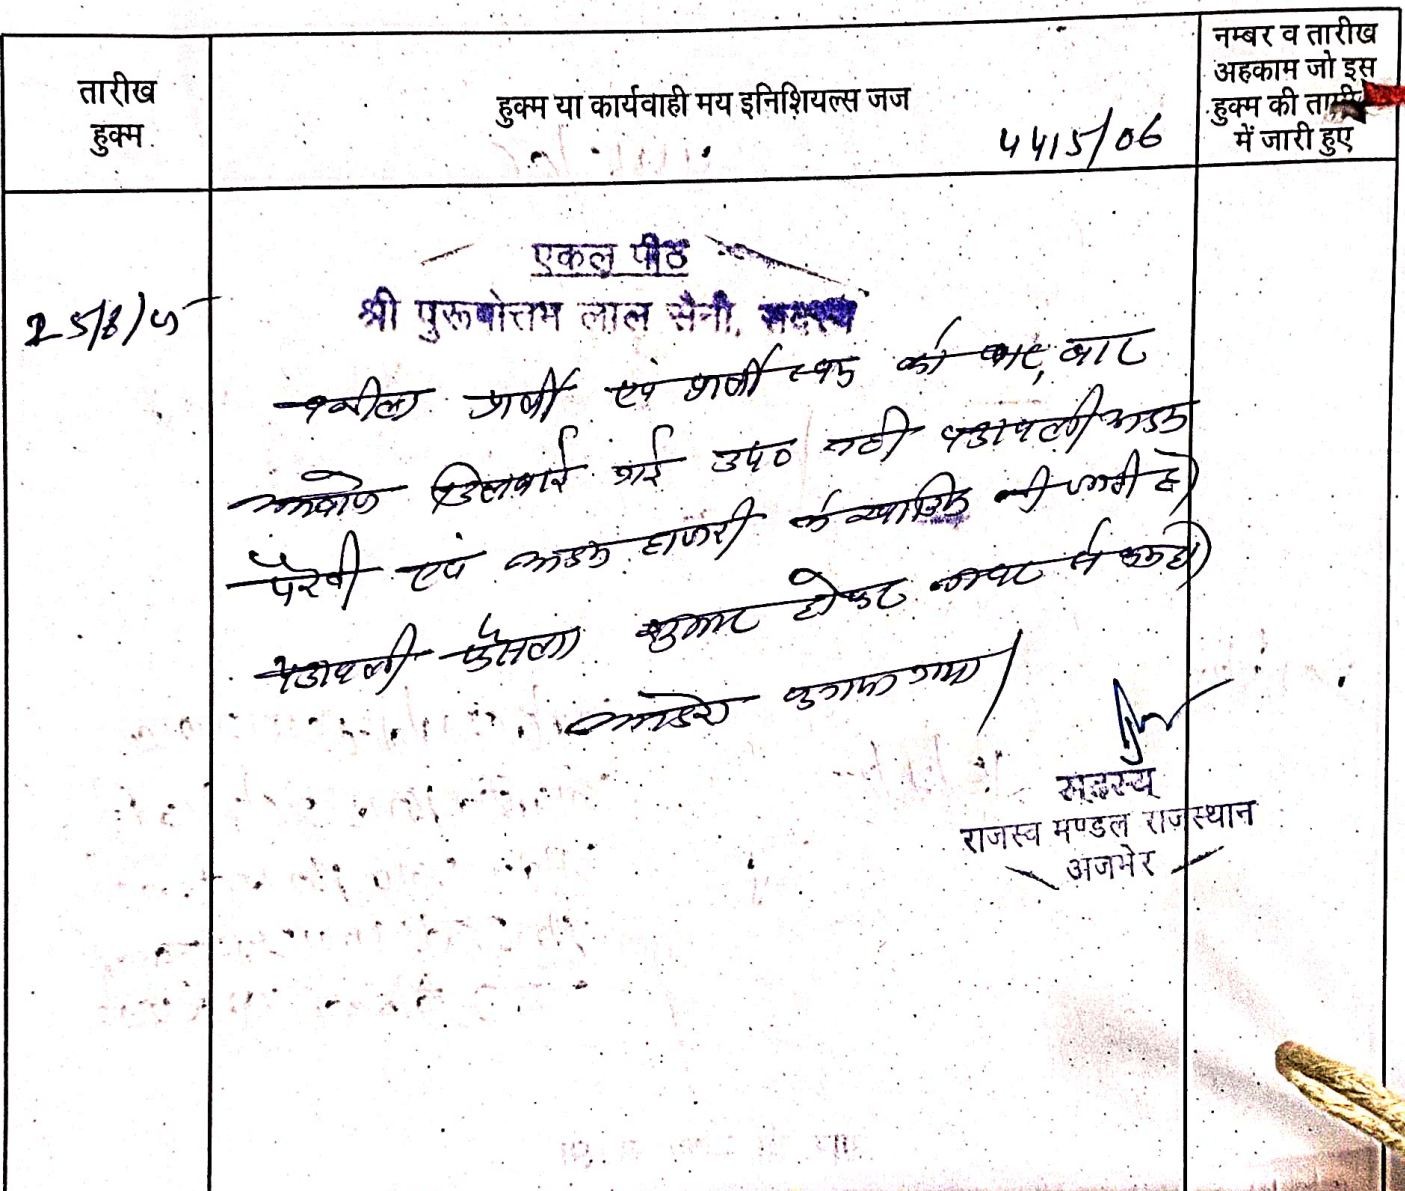 तारीख
हुक्म
हुक्म या कार्यवाही मय इनिशियल्स जज
4415/06
नम्बर व तारीख
अहकाम जो इस
हुक्म की
में जारी हुए
एकल पीठ
श्री पुरूषोत्तम लाल सैनी, सदस्य
25/8/
वकील प्रार्थी एवं प्रार्थी स्वयं को बार, बार
आवाज दिलवाई गई उप० नहीं पत्रावली अदम
पैरवी एवं अदम हाजरी में खारिज की जाती है।
पत्रावली फैसला शुमार होकर नम्बर से कम हो।
आदेश सुनाया गया।
सदस्य
राजस्व मण्डल राजस्थान
अजमेर